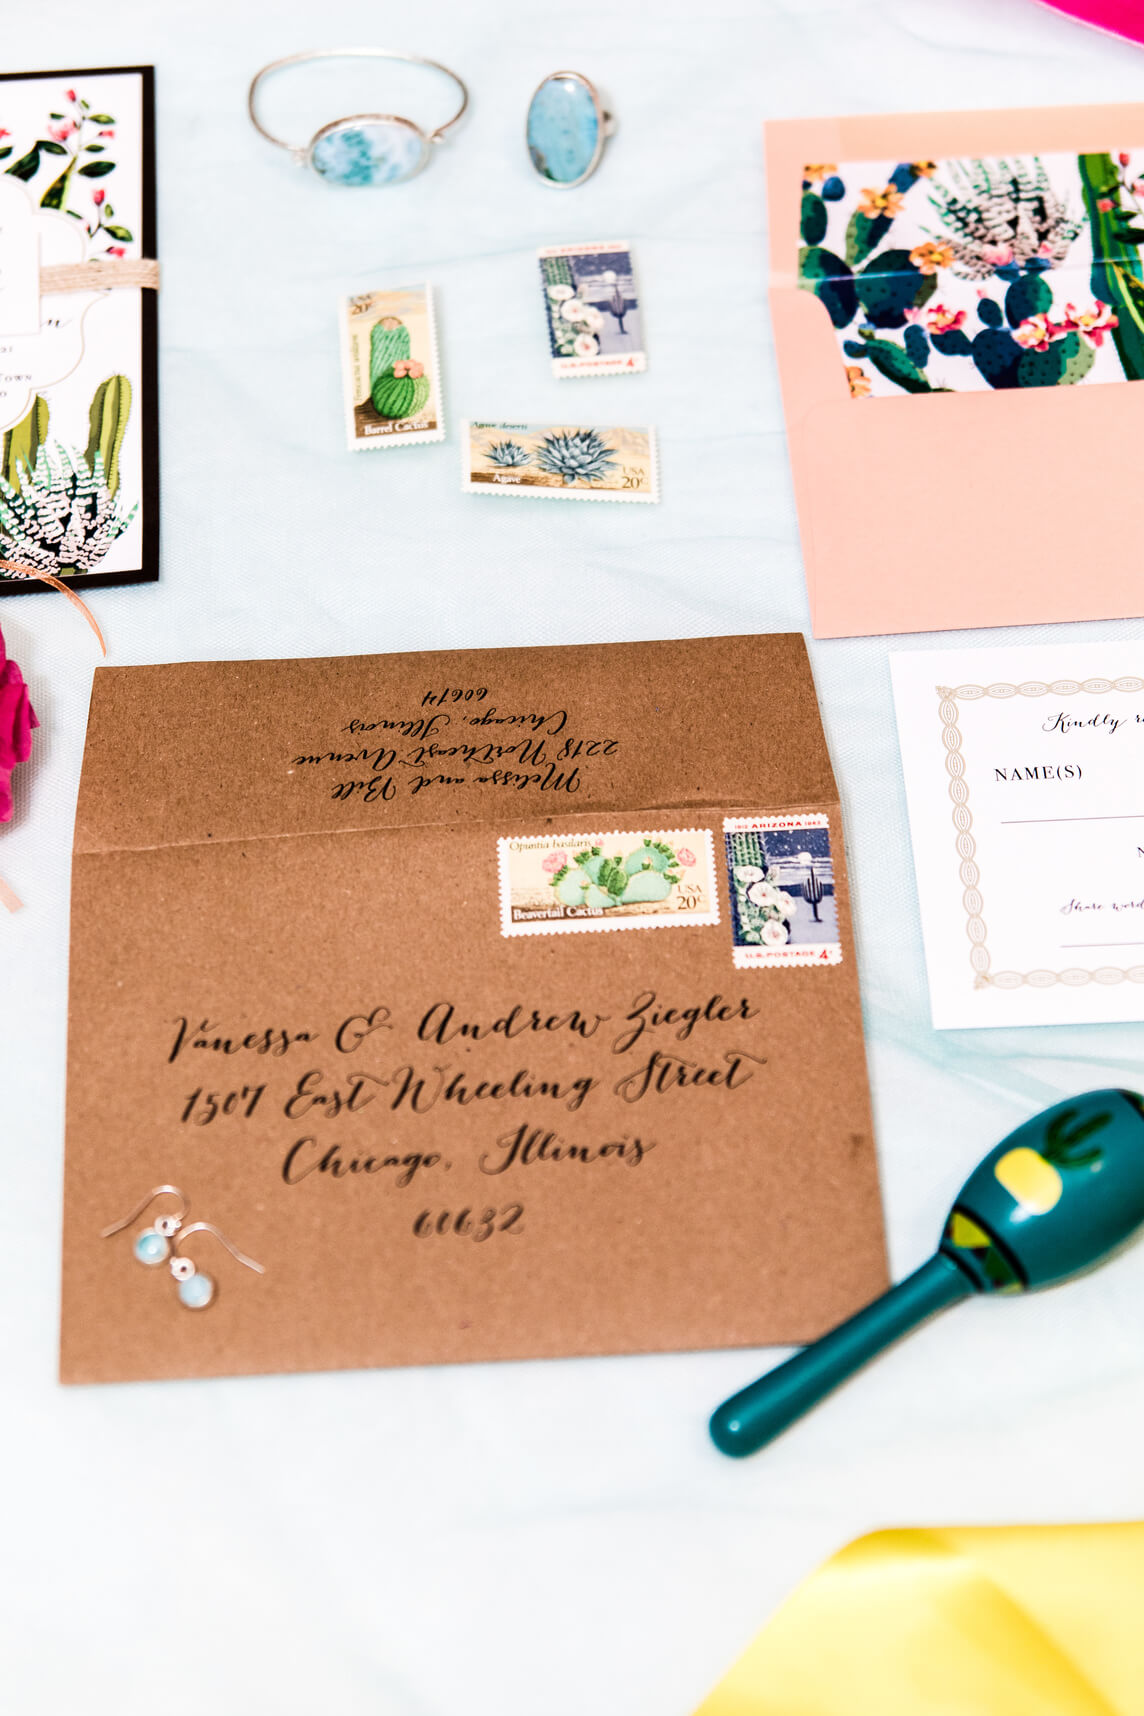 USA
20c
Barrel Cactus
ARIZONA
U.S. POSTAGE 4c
Agave deserti
Agave
USA
20c
Melissa and Bill
2218 Northeast Avenue
Chicago, Illinois
60614
Opuntia basilaris
USA
20c
Beavertail Cactus
1912 ARIZONA 1962
U.S. POSTAGE 4c
Vanessa & Andrew Ziegler
1507 East Wheeling Street
Chicago, Illinois
60632
Kindly
NAME(S)
Share